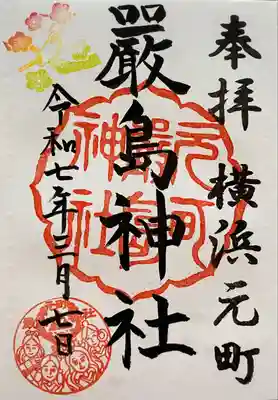 奉拝 横浜元町
厳島神社
令和七年三月七日
元町
厳島
神社